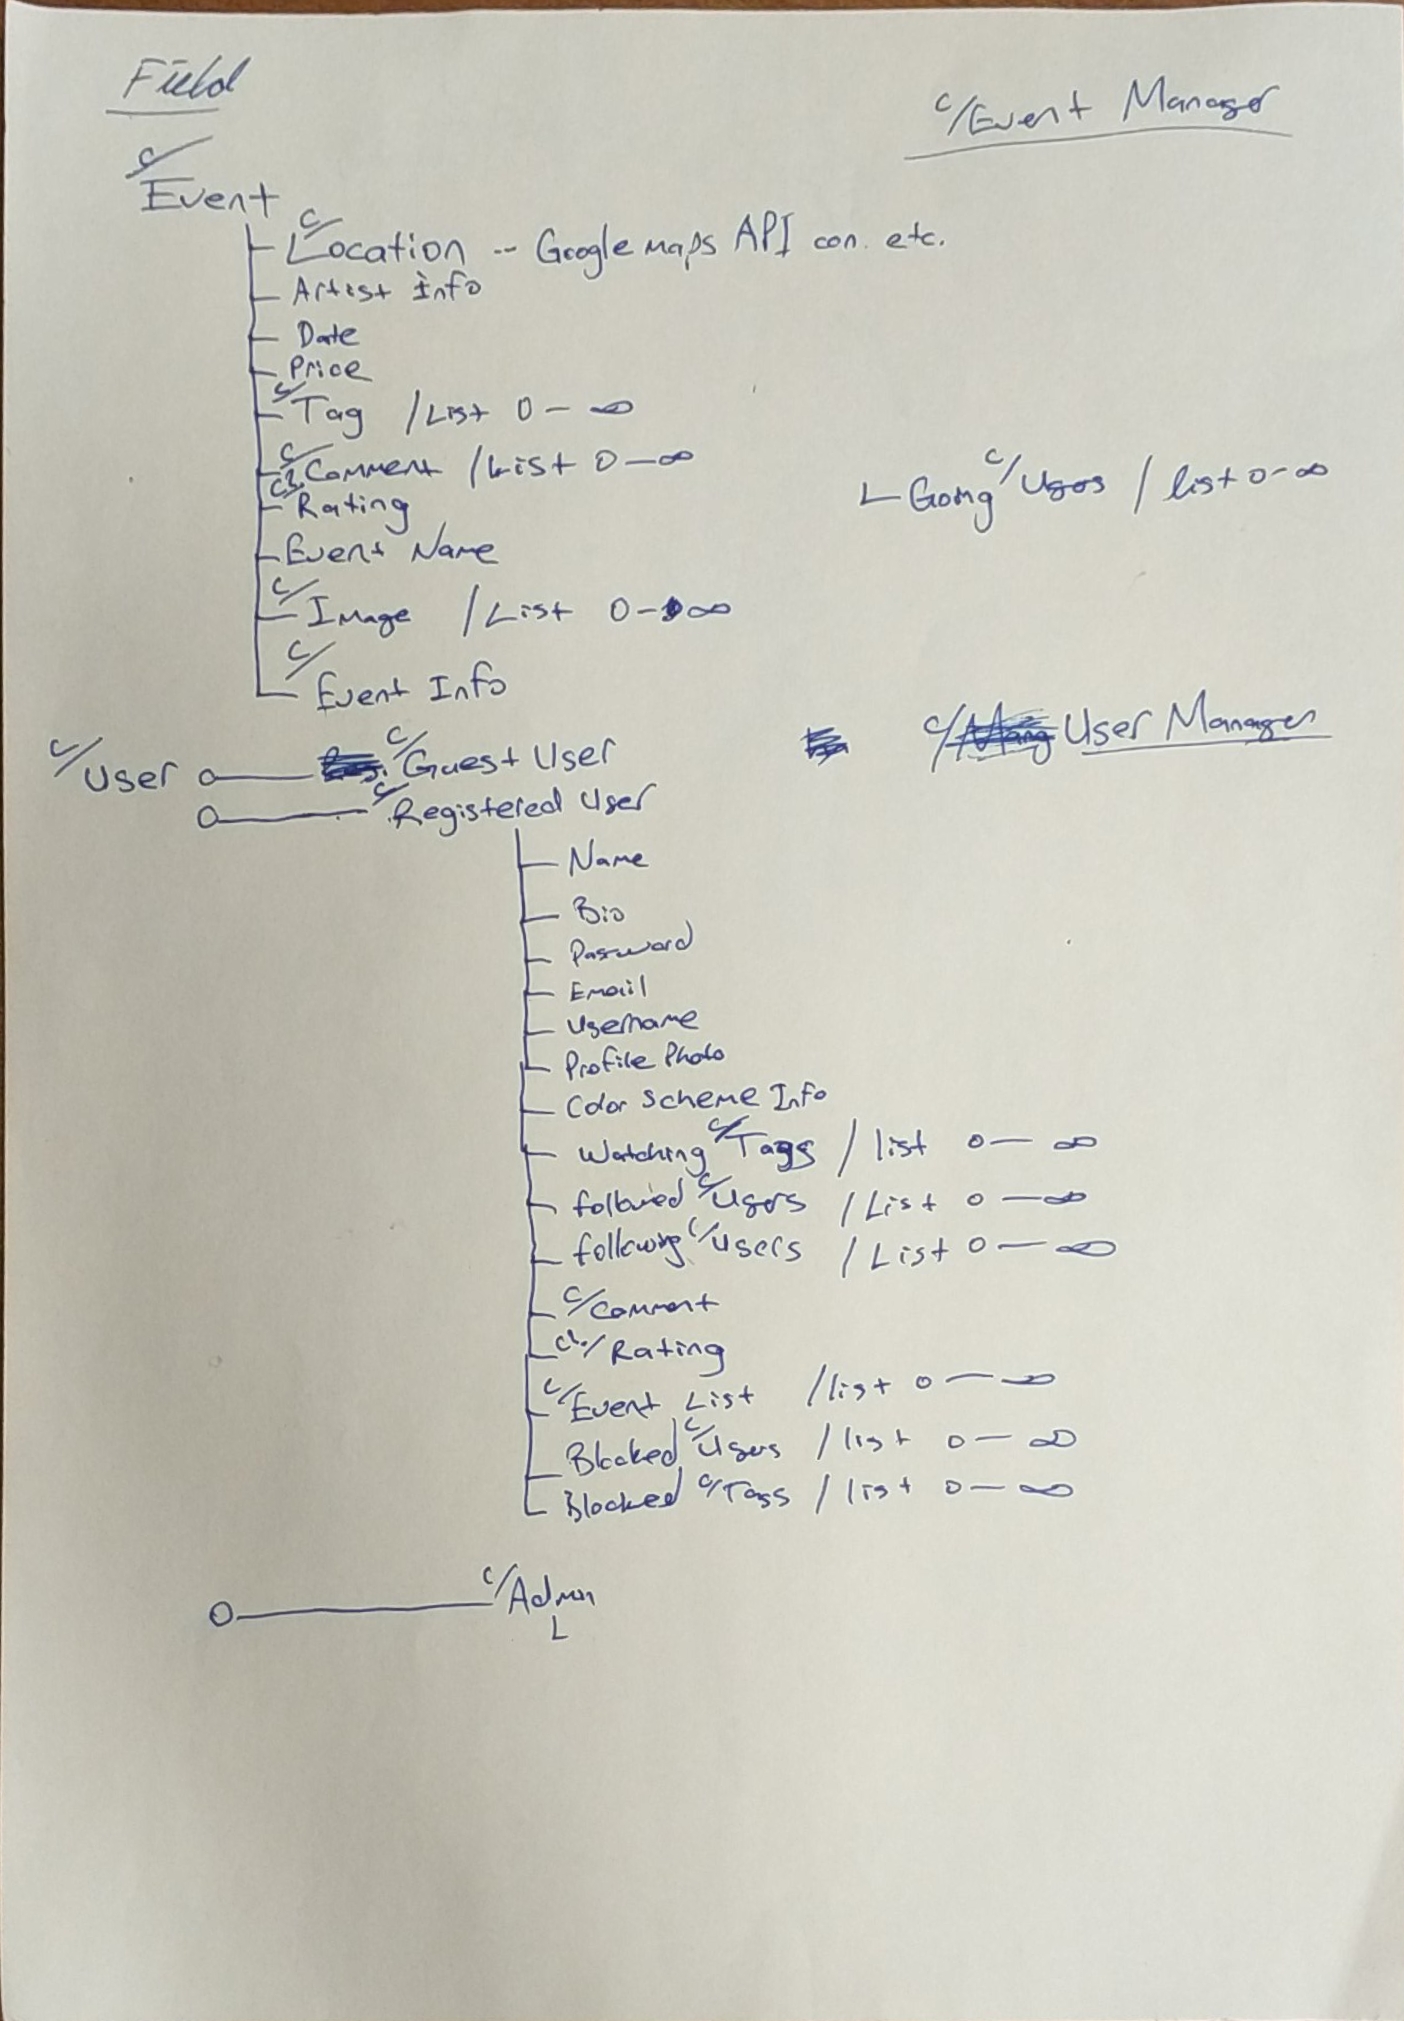 Field
c/Event Manager
c/
Event
c/Location -- Google maps API con. etc.
Artist Info
Date
Price
c/Tag /List 0 - ∞
c/Comment /List 0 - ∞
c?. Rating
Going c/Users / list 0 - ∞
Event Name
c/Image /List 0 - ∞
c/
Event Info
c/User Manager
c/User c/Guest User
c/Registered User
Name
Bio
Password
Email
Username
Profile Photo
Color Scheme Info
Watching c/Tags / list 0 - ∞
followed c/Users / List 0 - ∞
following c/users / List 0 - ∞
c/Comment
c?/Rating
c/Event List /list 0 - ∞
Blocked c/Users / list 0 - ∞
Blocked c/Tags / list 0 - ∞
c/Admin